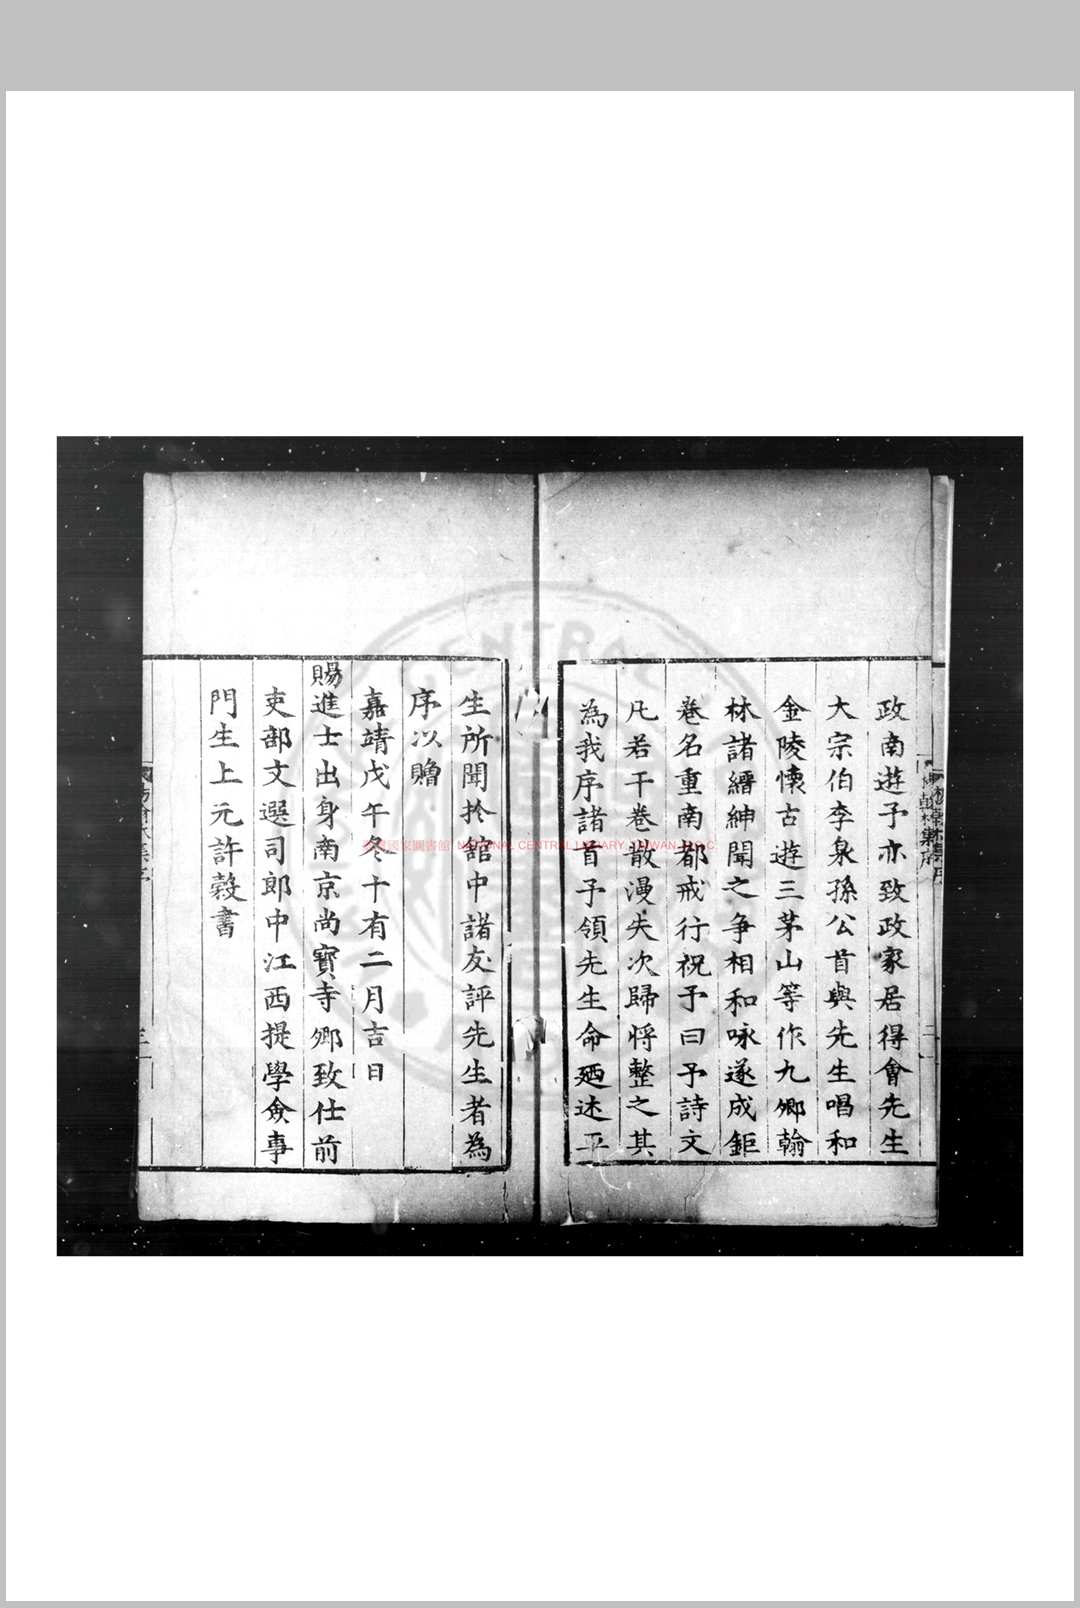 政南遊予亦致政家居得會先生
大宗伯李泉孫公首與先生唱和
金陵懷古遊三茅山等作九卿翰
林諸縉紳聞之爭相和咏遂成鉅
卷名重南都戒行祝予曰予詩文
凡若干卷散漫失次歸將整之其
為我序諸首予領先生命廼述平
生所聞扵舘中諸友評先生者為
序以贈
嘉靖戊午冬十有二月吉日
賜進士出身南京尚寶寺卿致仕前
吏部文選司郎中江西提學僉事
門生上元許穀書
國家圖書館 NATIONAL CENTRAL LIBRARY, TAIWAN, R.O.C.